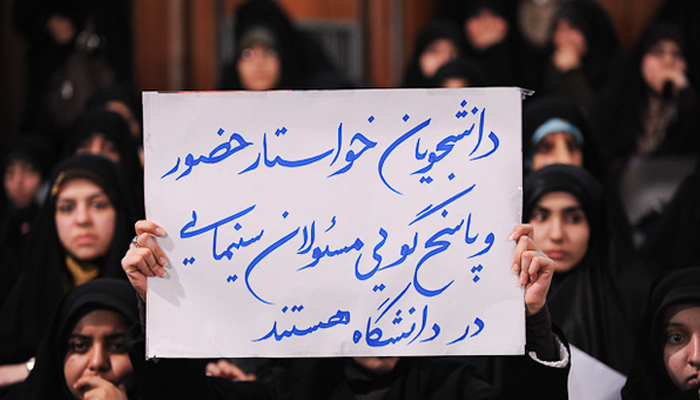 دانشجویان خواستار حضور
و پاسخ گویی مسئولان سینمایی
در دانشگاه هستند